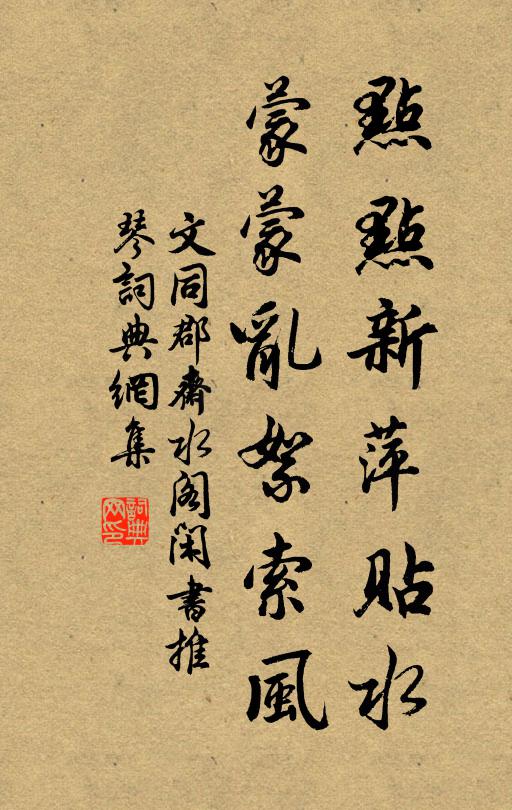 點點新萍貼水
蒙蒙亂絮索風
文同郡齋水閣閑書推
琴詞典網集
詞典網印